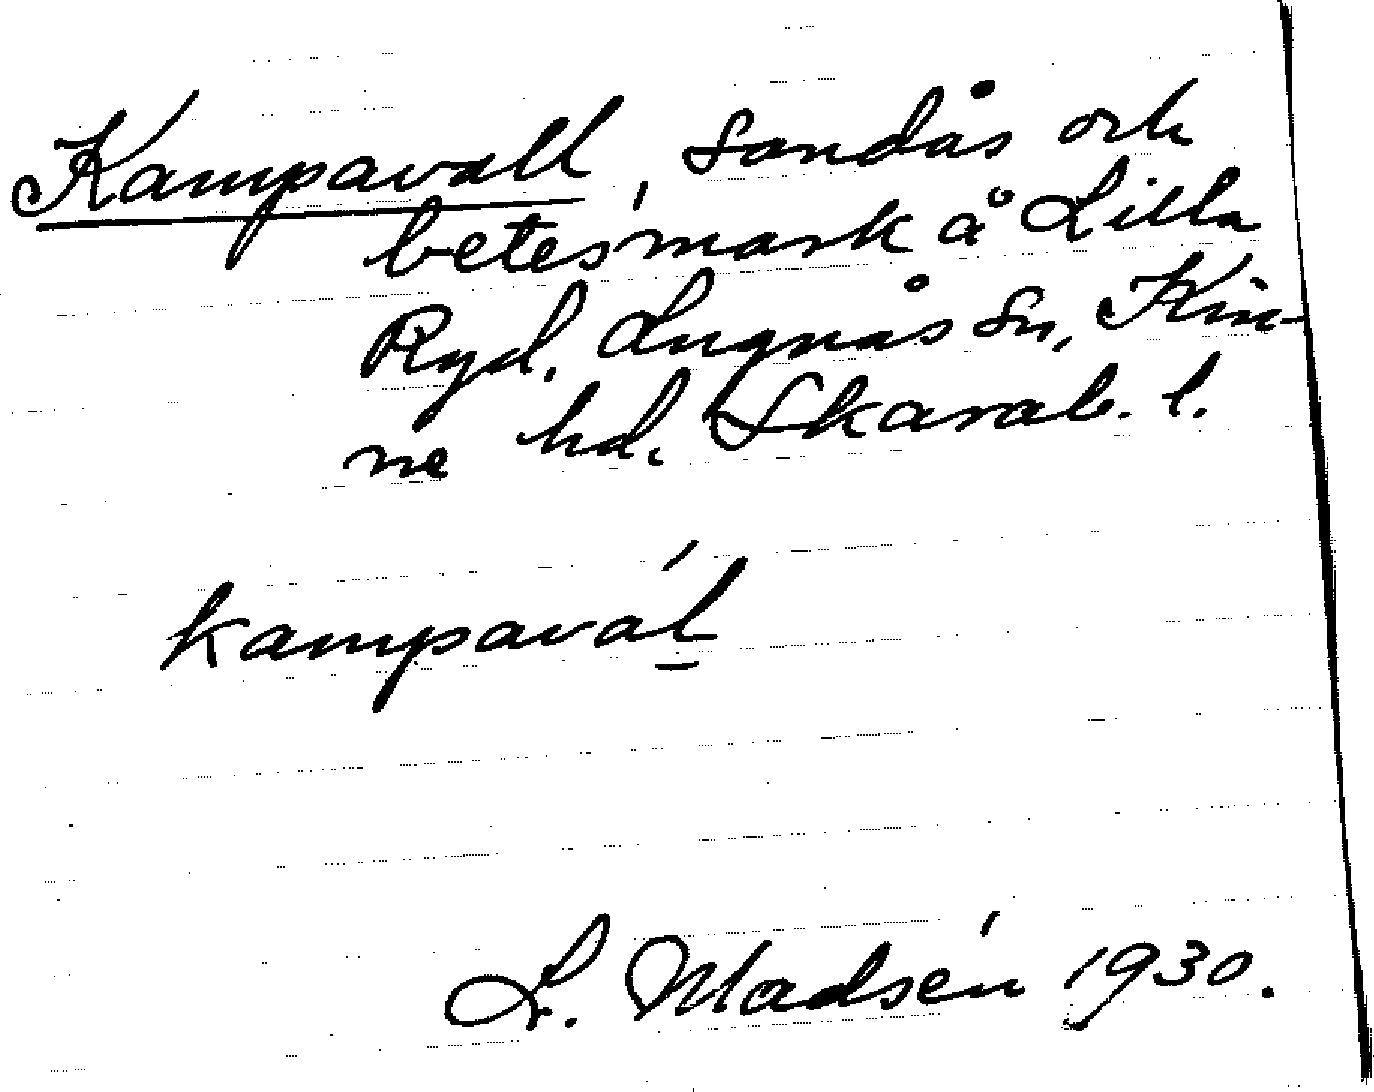 Kampavall, sandås och
betesmark å Lilla
Ryd. Lugnås sn, Kin-
ne hd. Skarab. l.
kampavál
L. Madsén 1930.